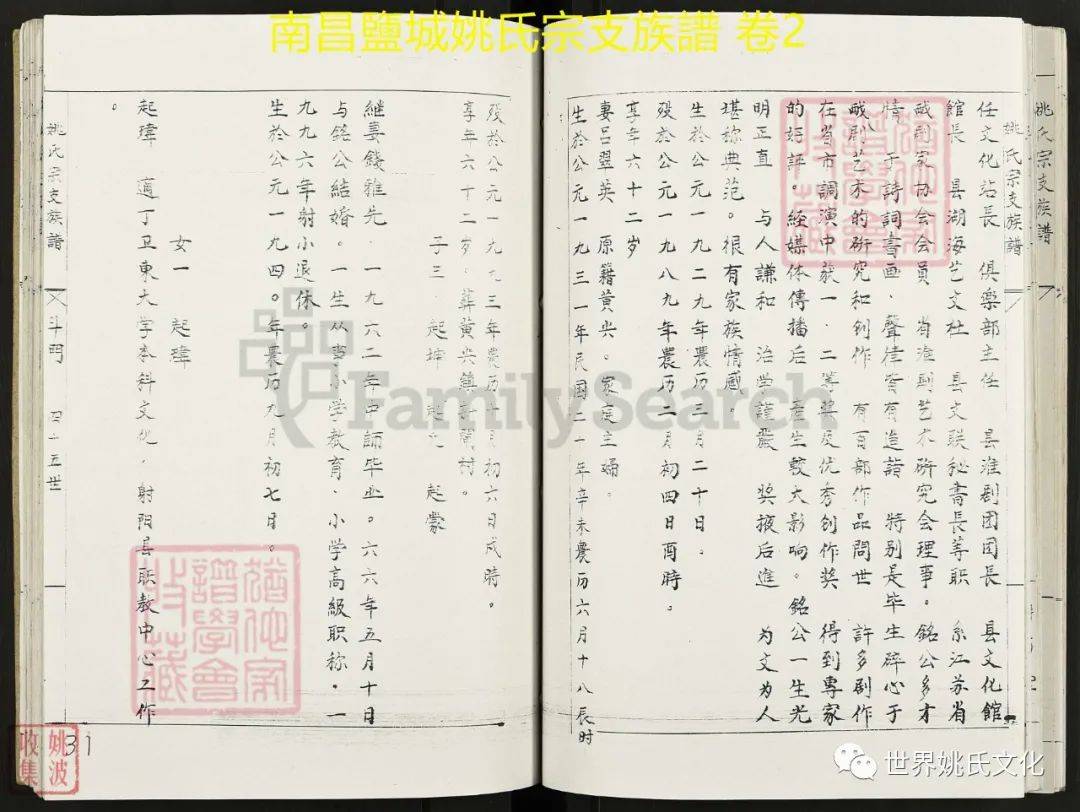 南昌鹽城姚氏宗支族譜 卷2
姚氏宗支族譜
姚氏宗支族譜
任文化站長 俱楽部主任 县淮剧团团长 县文化館
館長 县湖海艺文社 县文联秘書長等职 系江苏省
戲劇家协会会員 省淮剧艺术研究会理事。銘公多才
情 于詩詞書画．聲律皆有造詣 特别是毕生碎心于
戲剧艺术的研究和创作 有百部作品問世 許多剧作
在省市調演中获一．二等奖及优秀创作奖 得到專家
的好評。经媒体傳播后 產生較大影响。銘公一生光
明正直 与人謙和 治学謹嚴 奖掖后進 为文为人
堪称典范。很有家族情感。
生於公元一九二九年農历三月二十日。
殁於公元一九八九年農历二月初四日酉時。
享年六十二岁
妻吕翠英 原籍黄尖．家庭主婦。
生於公元一九三一年民国二十年辛未農历六月十八辰时
殁於公元一九九三年農历十月初六日戌時。
享年六十二岁．葬黄尖鎮
子三 起坤 起 起蒙
继妻錢雅先．一九六二年中師毕业。六六年五月十日
与銘公結婚。一生从事小学教育．小学高級职称．一
九九六年射小退休。
生於公元一九四〇年農历九月初七日。
女一 起瑋
起瑋 適丁卫東大学本科文化．射阳县职教中心工作
。
姚氏宗支族譜
斗門
四十五世
31
姚波
收集
FamilySearch
世界姚氏文化